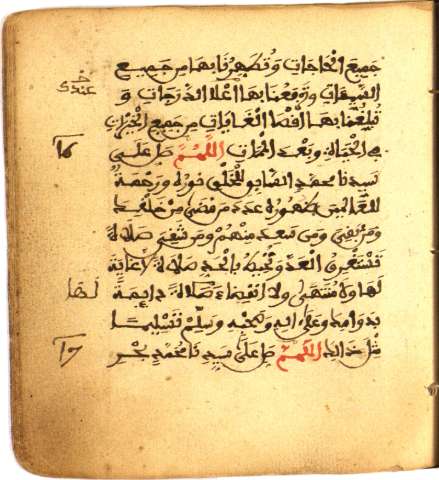 جميع الحاجات وتطهرنا بها من جميع
السيئات وترفعنا بها اعلا الدرجات و
عندك
تبلغنا بها اقصا الغايات من جميع الخيرات
في الحياة وبعد الممات اللهم صل على
سيدنا محمد السابق للخلق نوره ورحمة
للعالمين ظهوره عدد من مضى من خلقك
ومن بقي ومن سعد منهم ومن شقي صلاة
تستغرق العد وتحيط بالحد صلاة لا غاية
لها ولا منتهى ولا انقضاء صلاة دايمة
لها
بدوامك وعلى اله وصحبه وسلم تسليما
مثل ذالك اللهم صل على سيدنا محمد بحر